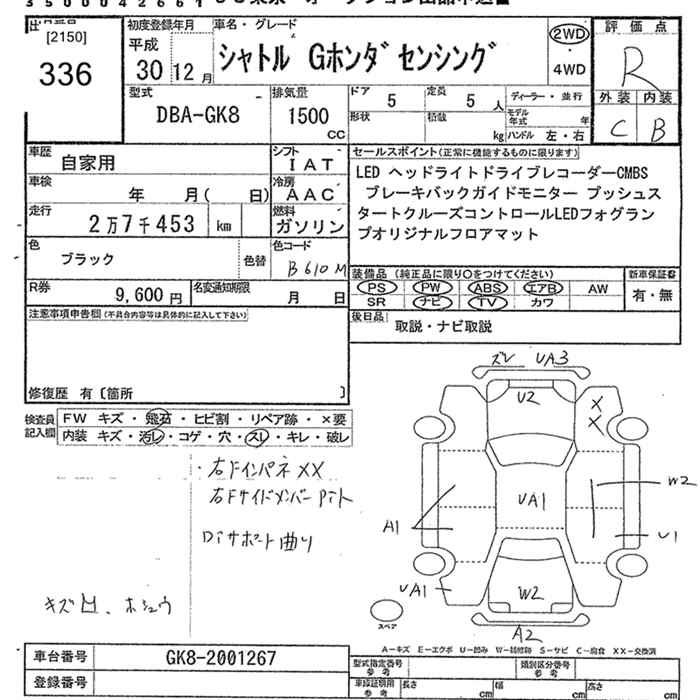 [2150]
336
初度登録年月
平成
30年 12月
車名・グレード
シャトル Gホンダセンシング
2WD
・
4WD
評価点
R
外装 内装
C B
型式
DBA-GK8
排気量
1500
CC
ドア 5
定員 5人
ディーラー・並行
形状
積載
kg
モデル年式 年
ハンドル 左・右
車歴 自家用
シフト IAT
車検 年 月( 日)
冷房 AAC
走行 2万7千453 km
燃料 ガソリン
色 ブラック
色替
色コード
B610M
R券 9,600円
名変通知期限 月 日
セールスポイント(正常に機能するものに限ります)
LED ヘッドライトドライブレコーダーCMBS
ブレーキバックガイドモニター プッシュス
タートクルーズコントロールLEDフォグラン
プオリジナルフロアマット
装備品 (純正品に限り○をつけてください)
PS PW ABS エアB AW
SR ナビ TV カワ
新車保証書
有・無
後日品 取説・ナビ取説
注意事項申告欄(不具合内容等は具体的に記入して下さい)
修復歴 有〔箇所 〕
検査員記入欄
FW キズ・飛石・ヒビ割・リペア跡・×要
内装 キズ・汚レ・コゲ・穴・スレ・キレ・破レ
・右Fインパネ XX
右Fサイドメンバー Pit
Diサポート曲り
キズ凹、ホシュウ
ズレ UA3
U2
X
X
W2
UA1
A1
U1
UA1
W2
A2
スペア
A-キズ E-エクボ U-凹み W-補修跡 S-サビ C-腐食 XX-交換済
車台番号 GK8-2001267
登録番号
型式指定番号 参考
類別区分番号 参考
車検証明用 参考
長さ cm
幅 cm
高さ cm